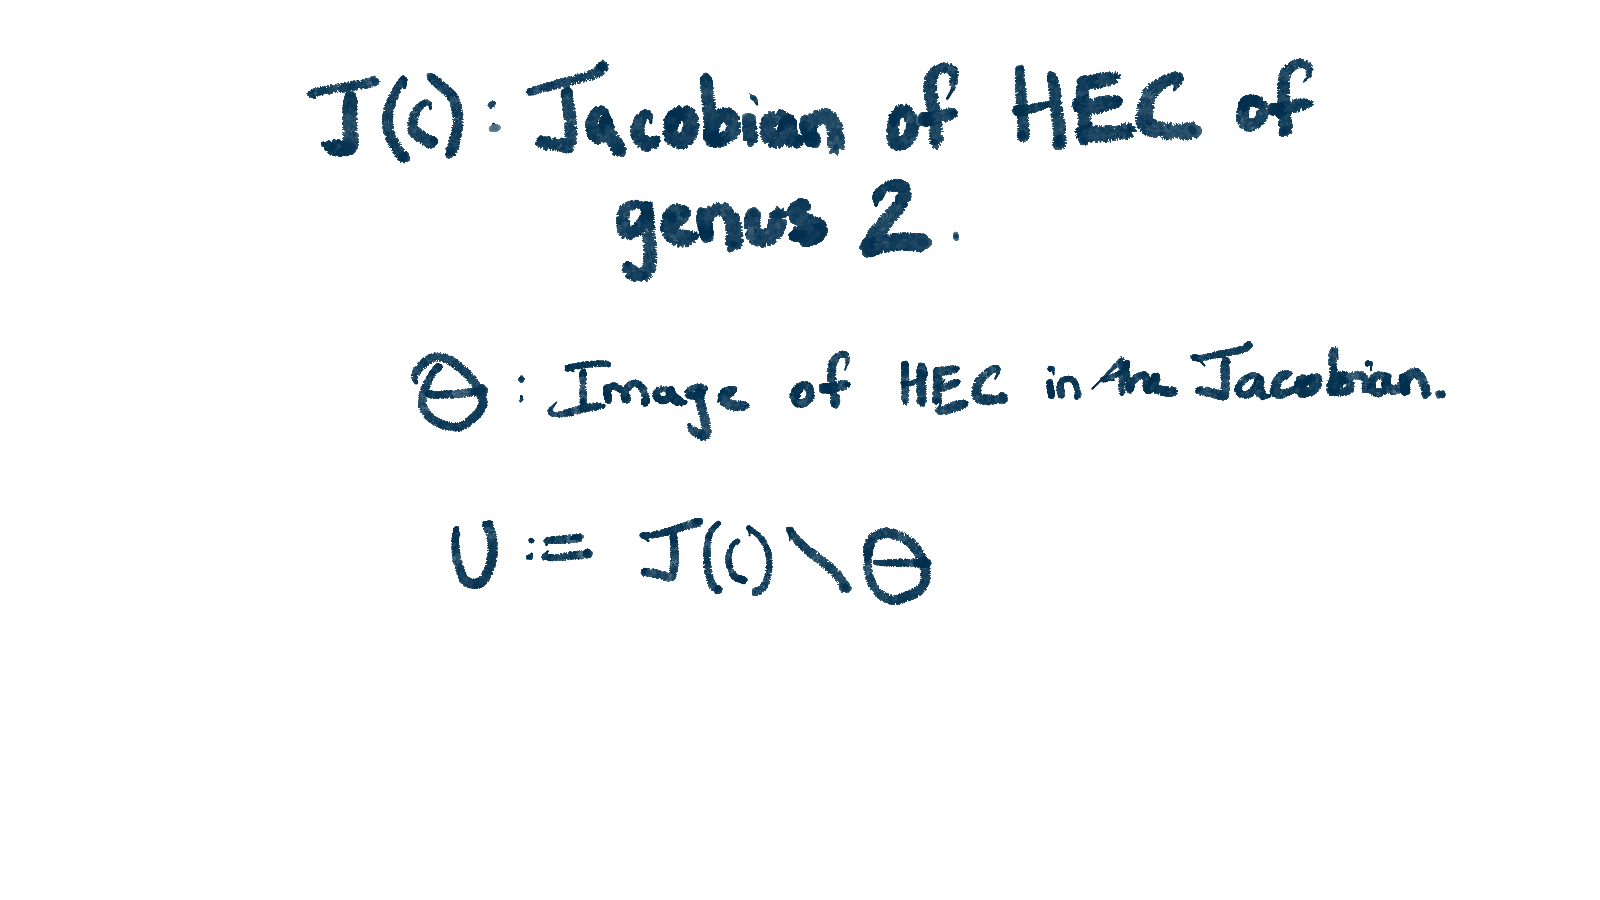 J(C): Jacobian of HEC of
genus 2.
Θ: Image of HEC in the Jacobian.
U := J(C) \ Θ